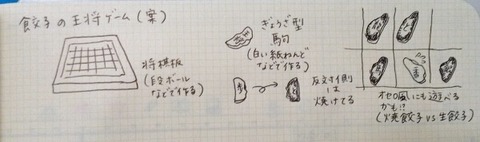 餃子の王将ゲーム(案)
将棋板
(段ボール
などで作る)
ぎょうざ型
駒
(白い紙ねんど
などで作る)
反対側
は
焼けてる
オセロ風にも遊べる
かも!?
(焼餃子 VS 生餃子)